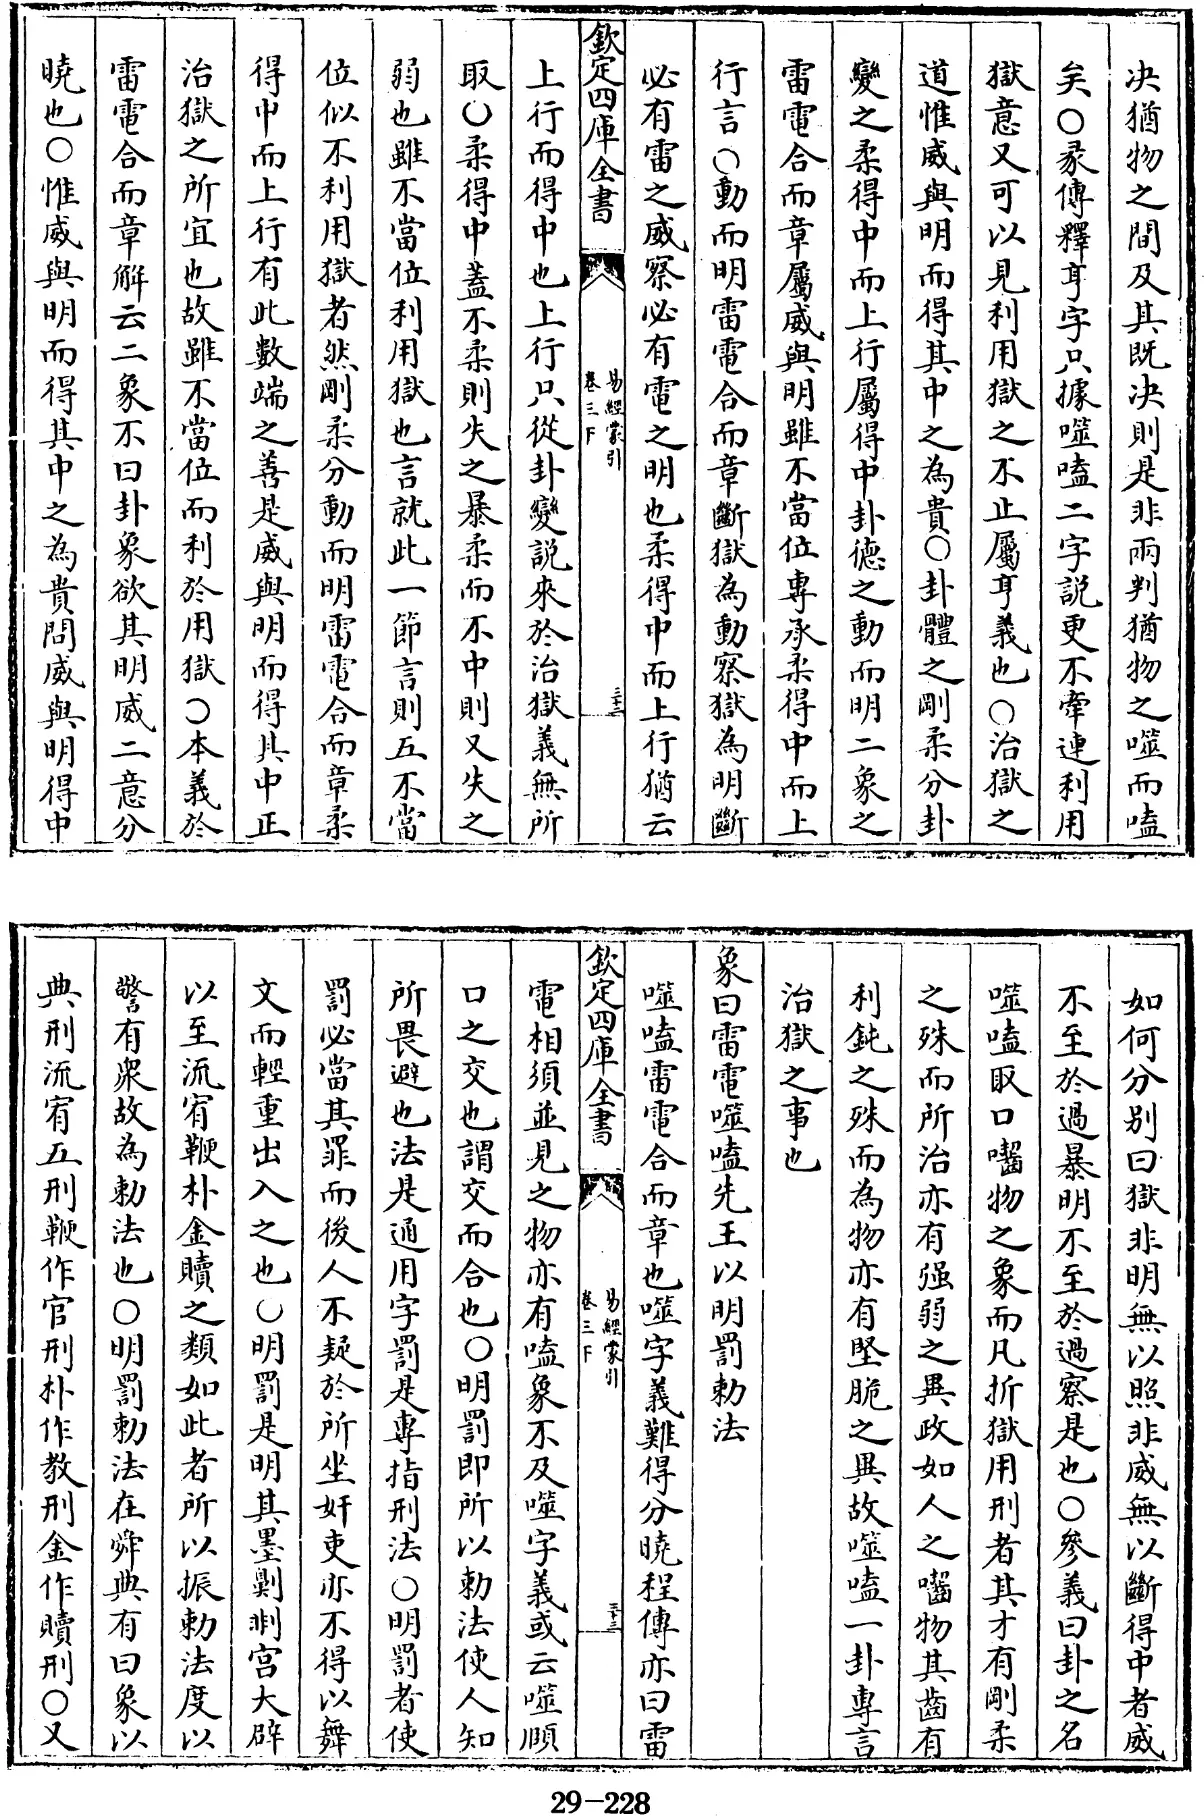 决猶物之間及其既决則是非兩判猶物之噬而嗑
矣○彖傳釋亨字只據噬嗑二字說更不牽連利用
獄意又可以見利用獄之不止屬亨義也○治獄之
道惟威與明而得其中之為貴○卦體之剛柔分卦
變之柔得中而上行屬得中卦德之動而明二象之
雷電合而章屬威與明雖不當位專承柔得中而上
行言○動而明雷電合而章斷獄為動察獄為明斷
必有雷之威察必有電之明也柔得中而上行猶云
欽定四庫全書
易經蒙引
卷三下
三十二
上行而得中也上行只從卦變說來於治獄義無所
取○柔得中蓋不柔則失之暴柔而不中則又失之
弱也雖不當位利用獄也言就此一節言則五不當
位似不利用獄者然剛柔分動而明雷電合而章柔
得中而上行有此數端之善是威與明而得其中正
治獄之所宜也故雖不當位而利於用獄○本義於
雷電合而章解云二象不曰卦象欲其明威二意分
曉也○惟威與明而得其中之為貴問威與明得中
如何分別曰獄非明無以照非威無以斷得中者威
不至於過暴明不至於過察是也○參義曰卦之名
噬嗑取口囓物之象而凡折獄用刑者其才有剛柔
之殊而所治亦有强弱之異政如人之囓物其齒有
利鈍之殊而為物亦有堅脆之異故噬嗑一卦專言
治獄之事也
象曰雷電噬嗑先王以明罰勅法
噬嗑雷電合而章也噬字義難得分曉程傳亦曰雷
欽定四庫全書
易經蒙引
卷三下
三十三
電相須並見之物亦有嗑象不及噬字義或云噬順
口之交也謂交而合也○明罰即所以勅法使人知
所畏避也法是通用字罰是專指刑法○明罰者使
罰必當其罪而後人不疑於所坐奸吏亦不得以舞
文而輕重出入之也○明罰是明其墨劓剕宮大辟
以至流宥鞭朴金贖之類如此者所以振勅法度以
警有衆故為勅法也○明罰勅法在舜典有曰象以
典刑流宥五刑鞭作官刑朴作教刑金作贖刑○又
29-228